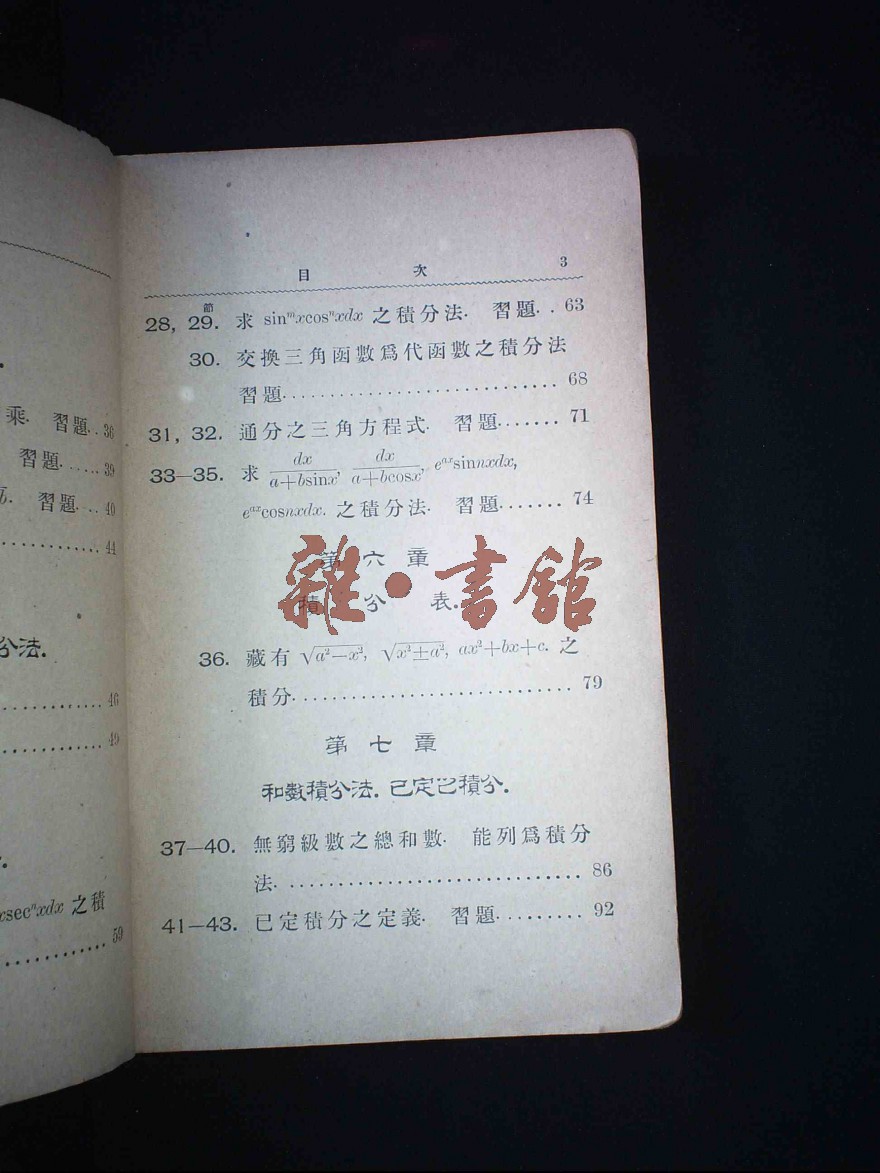 乘. 習題..36
習題.....39
習題....40
............44
分法.
............46
............49
xsecⁿxdx 之積
............59
目 次 3
節
28, 29. 求 sinᵐxcosⁿxdx 之積分法. 習題. . 63
30. 交換三角函數爲代函數之積分法
習題............................ 68
31, 32. 通分之三角方程式. 習題....... 71
33—35. 求 dx/(a+bsinx), dx/(a+bcosx), eᵃˣsinnxdx,
eᵃˣcosnxdx. 之積分法. 習題....... 74
第 六 章
積 分 表.
雜·書館
36. 藏有 √(a²—x²), √(x²±a²), ax²+bx+c. 之
積分............................ 79
第 七 章
和數積分法. 已定積分.
37—40. 無窮級數之總和數. 能列爲積分
法. .............................. 86
41—43. 已定積分之定義. 習題......... 92